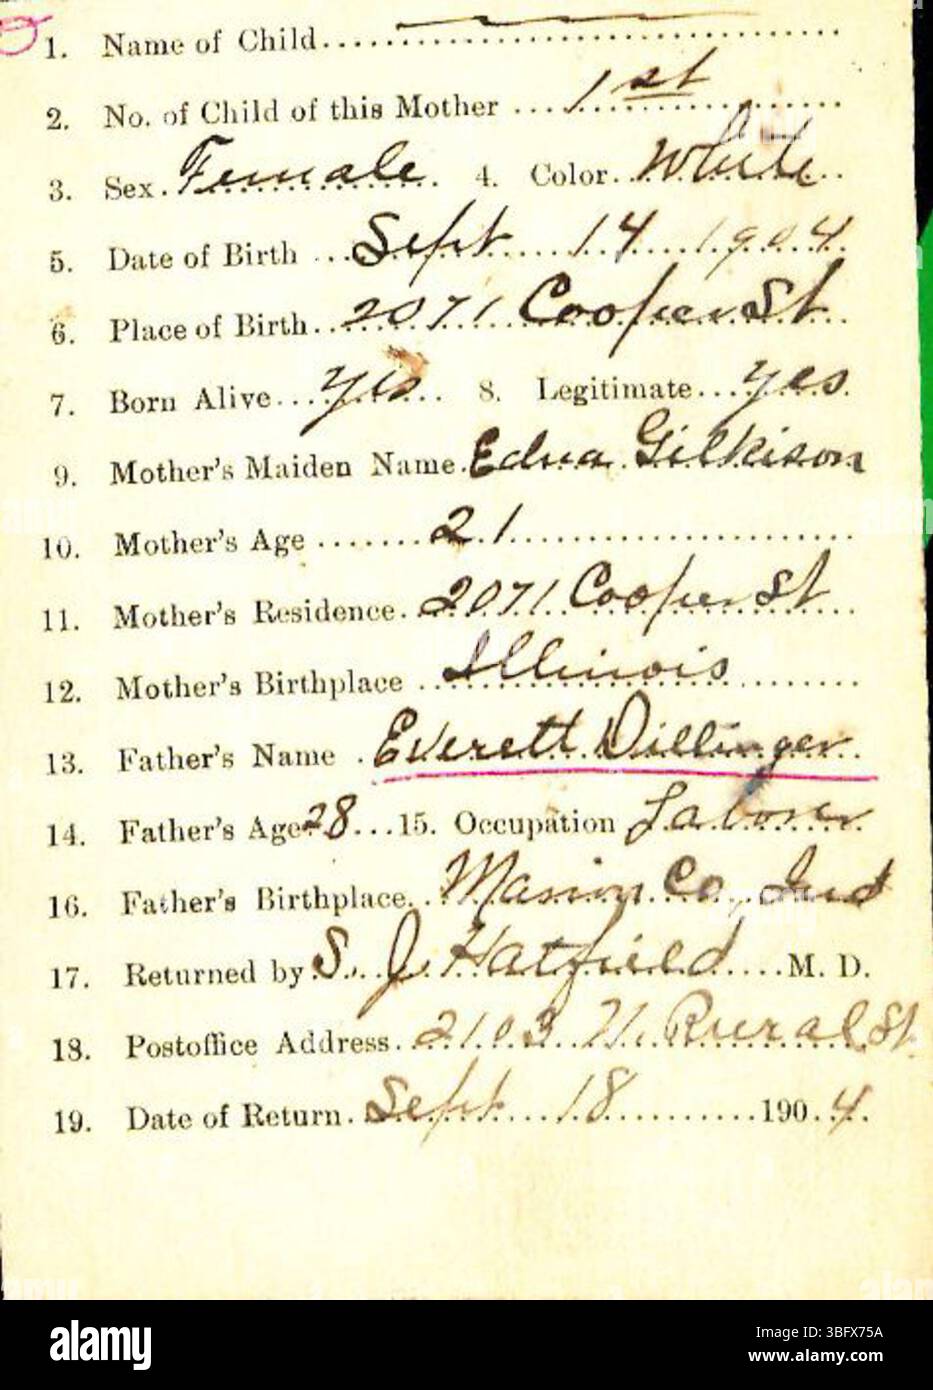 1. Name of Child
2. No. of Child of this Mother 1st
3. Sex Female 4. Color White
5. Date of Birth Sept 14 1904
6. Place of Birth 2071 Cooper St
7. Born Alive yes 8. Legitimate yes
9. Mother's Maiden Name Edna Gilkison
10. Mother's Age 21
11. Mother's Residence 2071 Cooper St
12. Mother's Birthplace Illinois
13. Father's Name Everett Dillinger
14. Father's Age 28 15. Occupation Labor
16. Father's Birthplace Marion Co, Ind
17. Returned by S. J. Hatfield M. D.
18. Postoffice Address 2103 N. Rural St.
19. Date of Return Sept 18 1904
alamy
Image ID: 3BFX75A
www.alamy.com